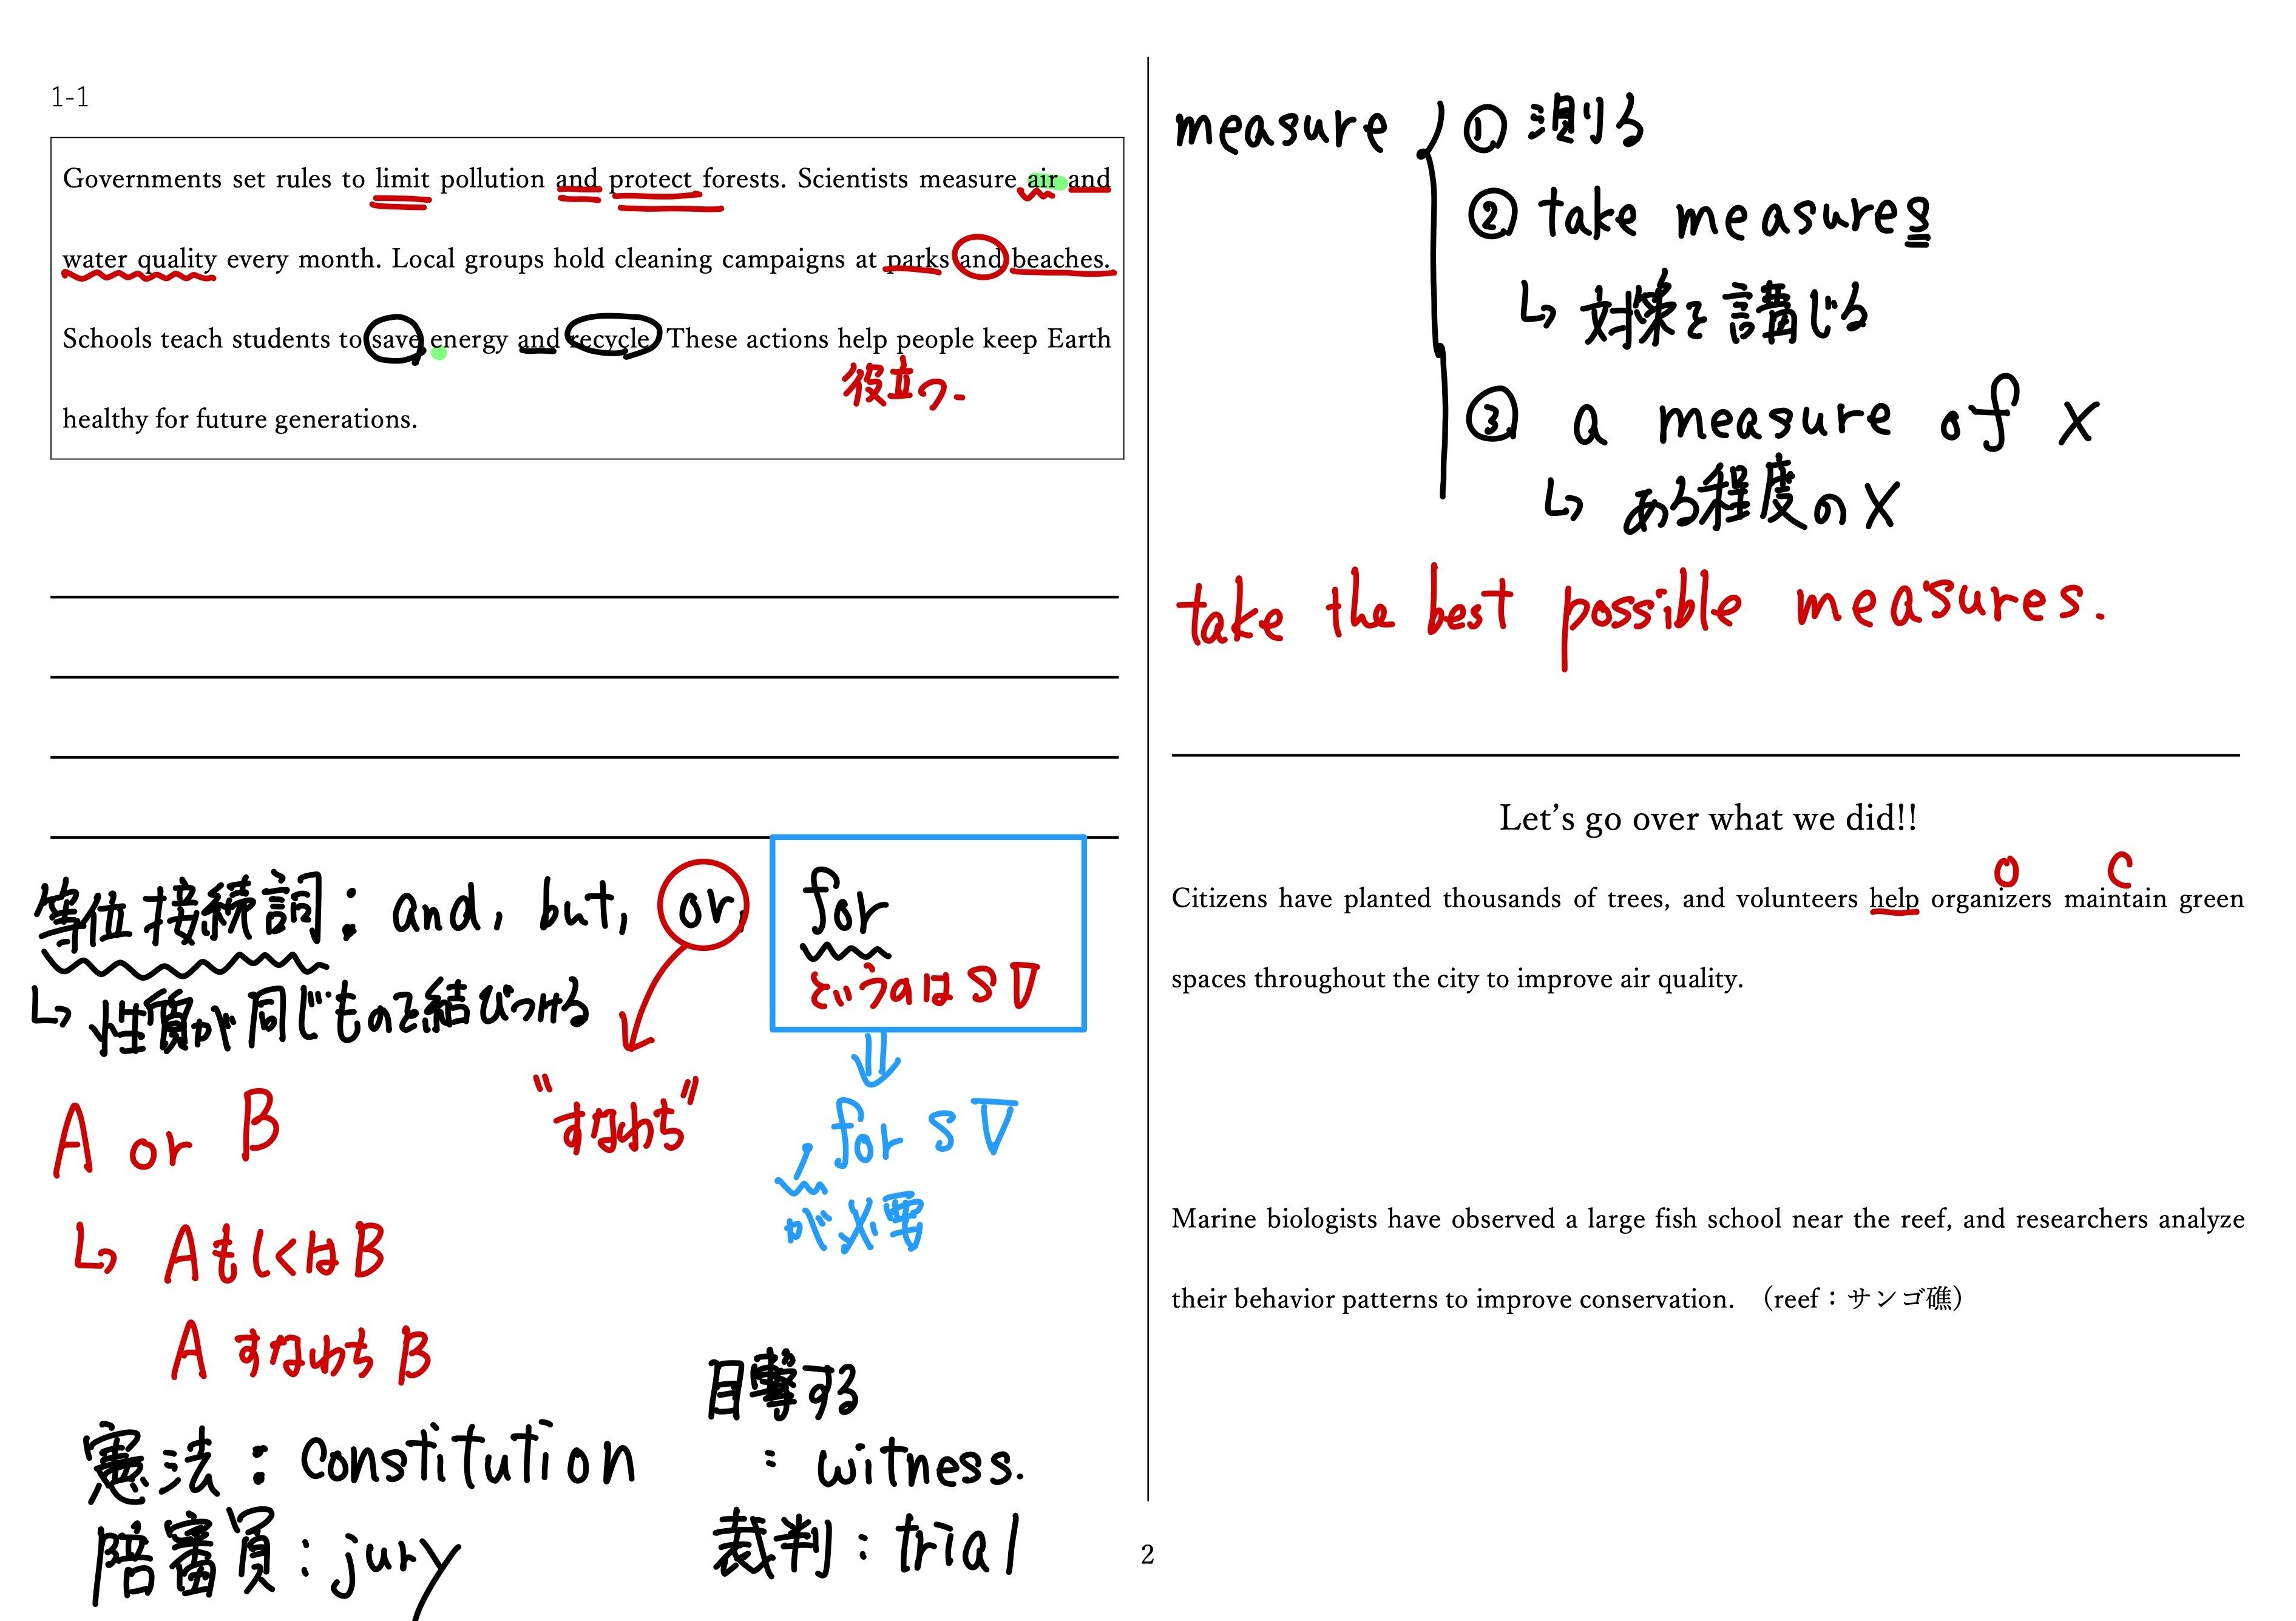 1-1
Governments set rules to limit pollution and protect forests. Scientists measure air and
water quality every month. Local groups hold cleaning campaigns at parks and beaches.
Schools teach students to save energy and recycle. These actions help people keep Earth
役立つ.
healthy for future generations.
等位接続詞：and, but, or, for
というのは S V
↳ 性質が同じものを結びつける
"すなわち"
, for S V
が必要
A or B
↳ AもしくはB
A すなわち B
憲法：constitution
陪審員：jury
目撃する
：witness.
裁判：trial
measure ① 測る
② take measures
↳ 対策を講じる
③ a measure of X
↳ ある程度のX
take the best possible measures.
Let's go over what we did!!
O C
Citizens have planted thousands of trees, and volunteers help organizers maintain green
spaces throughout the city to improve air quality.
Marine biologists have observed a large fish school near the reef, and researchers analyze
their behavior patterns to improve conservation. （reef：サンゴ礁）
2